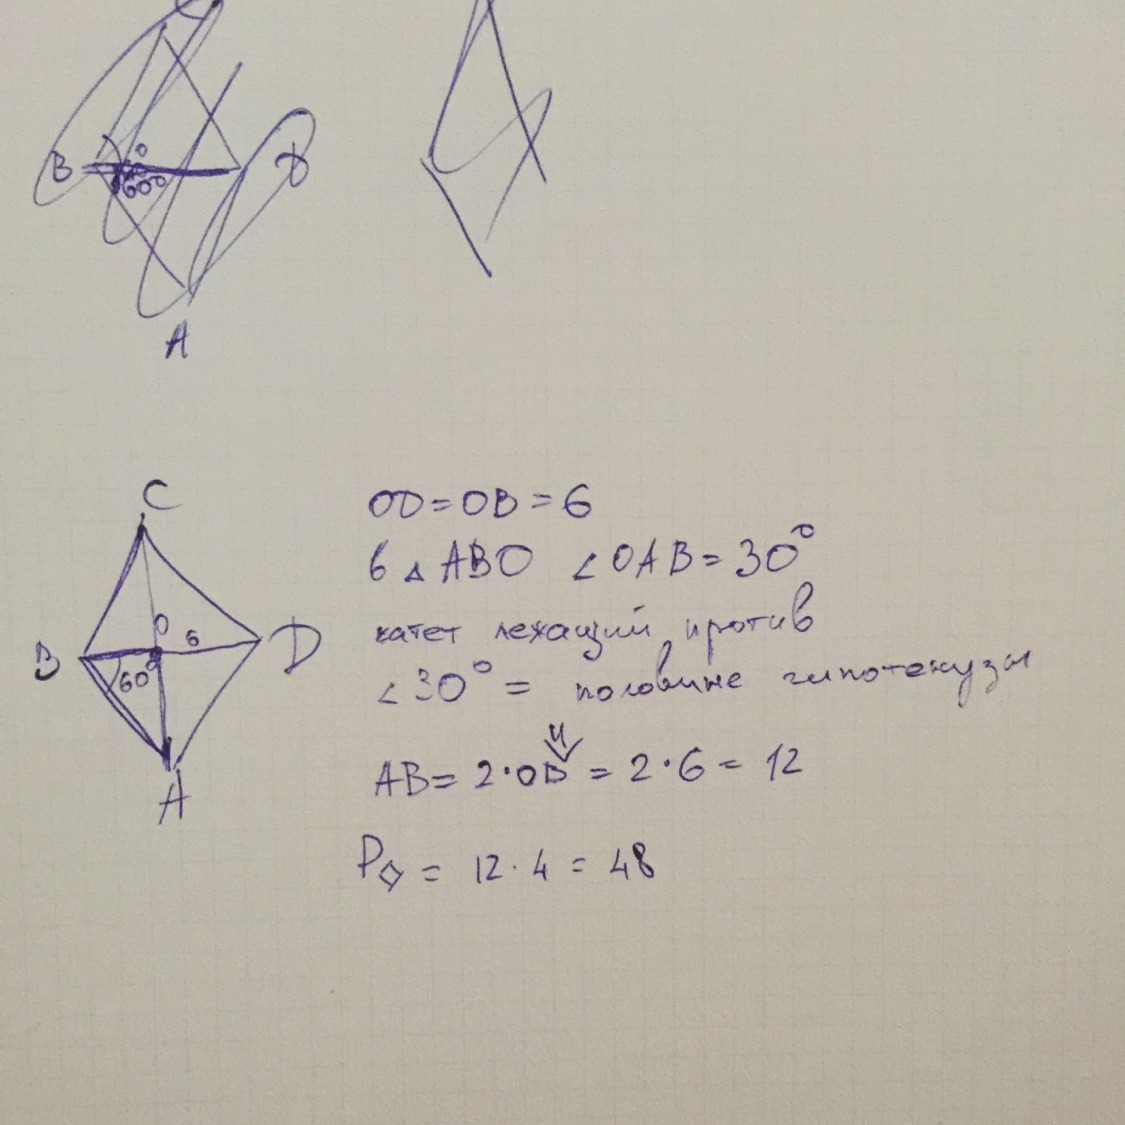 B
60°
D
A
C
B
O
6
D
60°
A
OD = OB = 6
в △ ABO ∠ OAB = 30°
катет лежащий против
∠ 30° = половине гипотенузы
AB = 2 · OB = 2 · 6 = 12
P◇ = 12 · 4 = 48